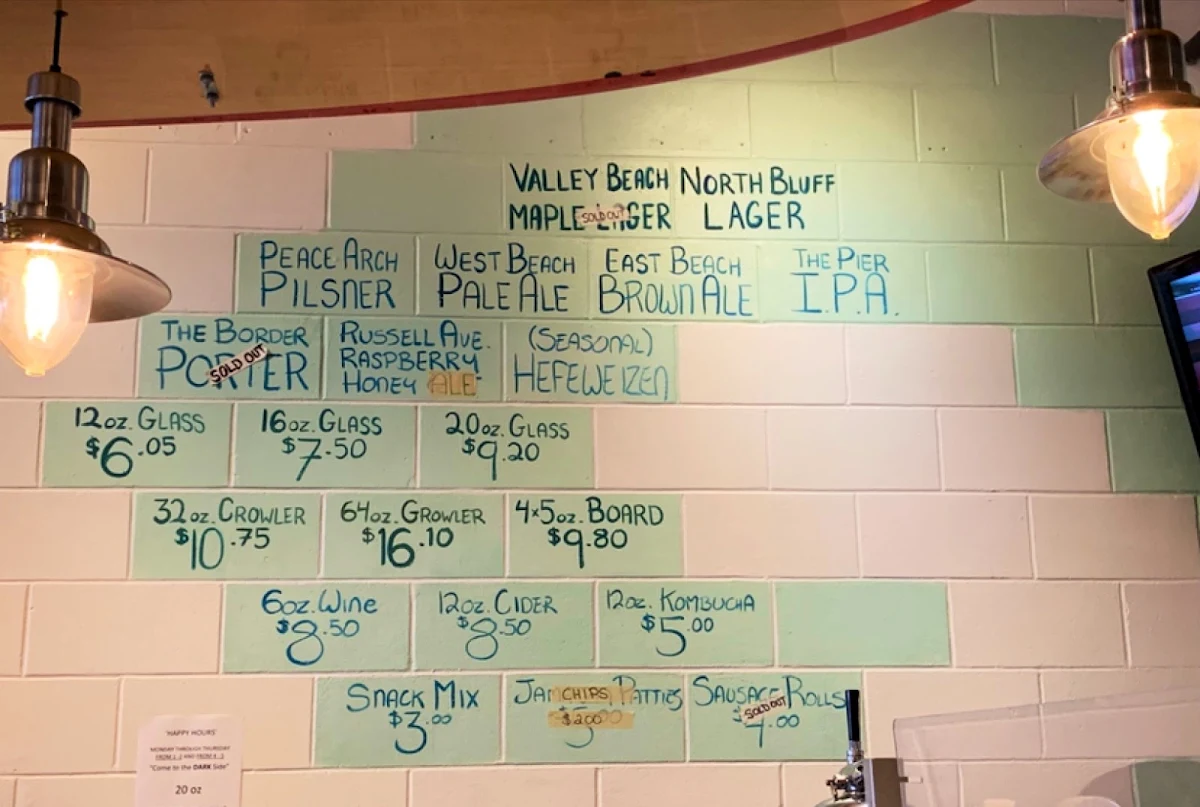 VALLEY BEACH
MAPLE LAGER
SOLD OUT
NORTH BLUFF
LAGER
PEACE ARCH
PILSNER
WEST BEACH
PALE ALE
EAST BEACH
BROWN ALE
THE PIER
I.P.A.
THE BORDER
PORTER
SOLD OUT
RUSSELL AVE.
RASPBERRY
HONEY ALE
(SEASONAL)
HEFEWEIZEN
12oz. GLASS
$6.05
16oz. GLASS
$7.50
20oz. GLASS
$9.20
32oz. CROWLER
$10.75
64oz. GROWLER
$16.10
4x5oz. BOARD
$9.80
6oz. WINE
$8.50
12oz. CIDER
$8.50
12oz. KOMBUCHA
$5.00
SNACK MIX
$3.00
CHIPS PATTIES
$2.00
SAUSAGE ROLLS
SOLD OUT
4.00
'HAPPY HOURS'
MONDAY THROUGH THURSDAY
"Come to the DARK Side"
20 oz